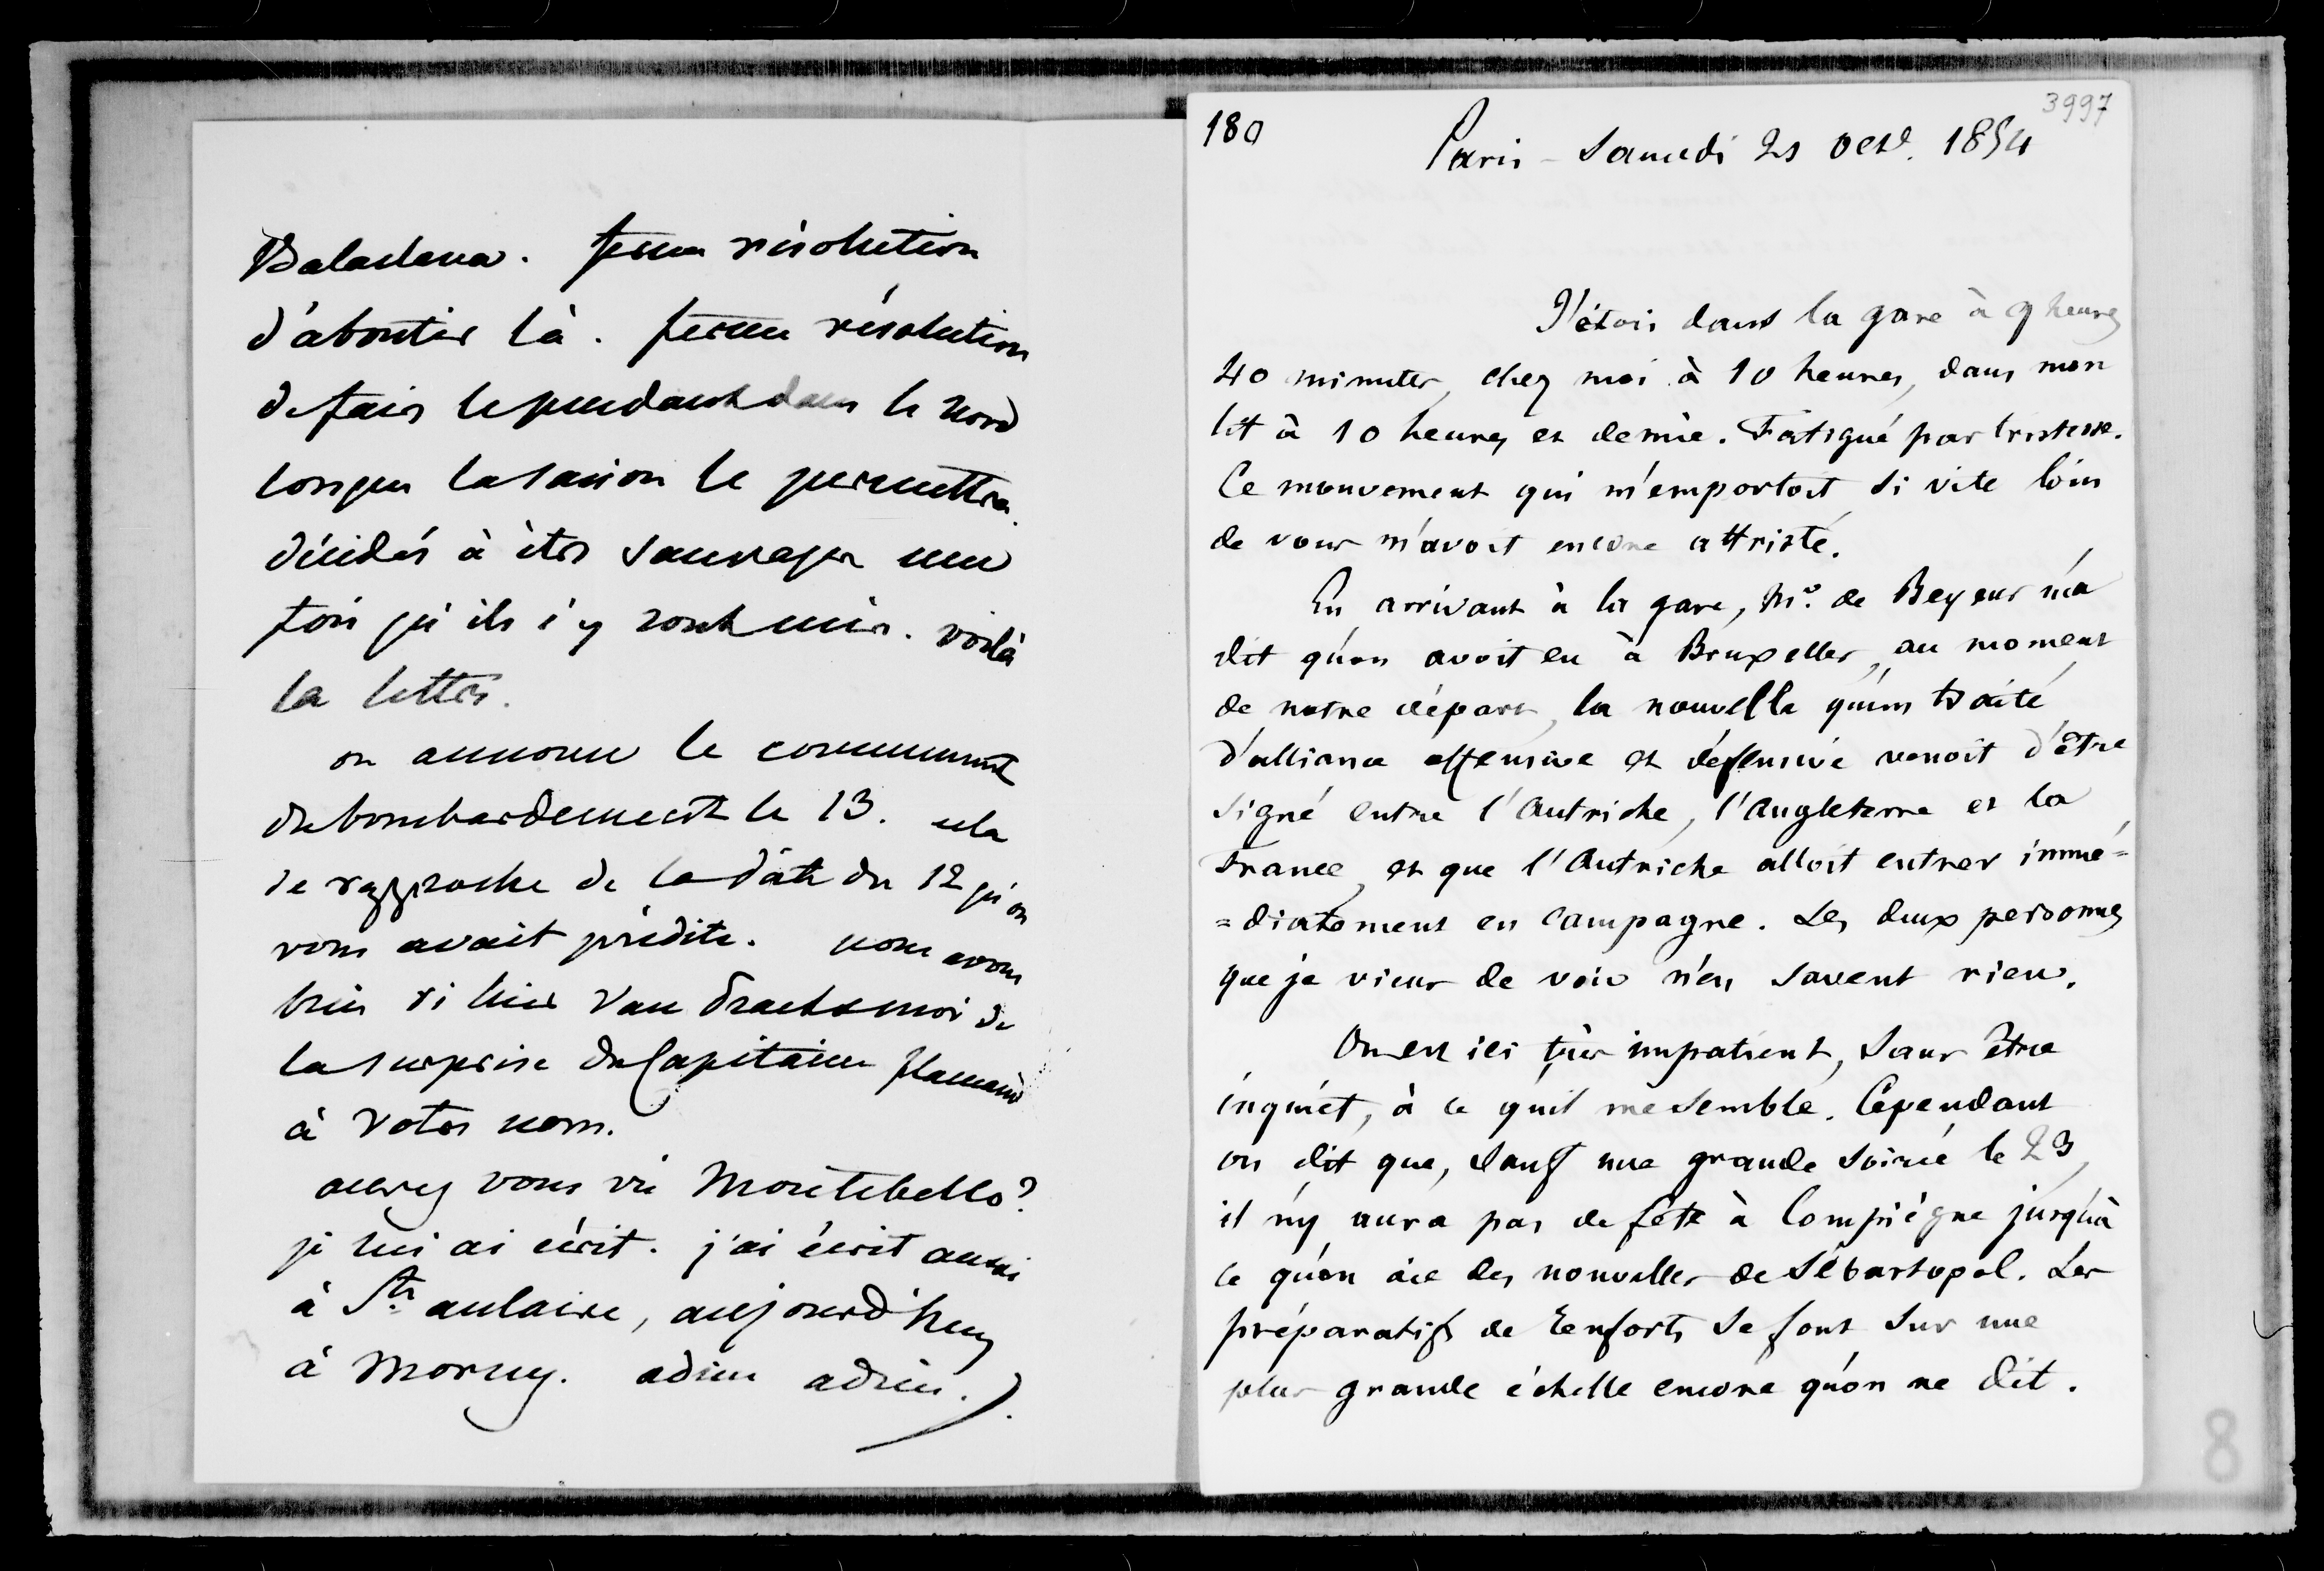 Balaclava. ferme résolution
d'aboutir là. ferme résolution
de faire le pendant dans le Nord
lorsque la saison le permettra.
décidés à être sauvages une
fois qu'ils s'y sont mis. voilà
la lettre.
on annonce le commencement
du bombardement le 13. cela
se rapproche de la date du 12 qu'on
vous avait prédite. nous avons
bien ri hier Van Straet & moi de
la surprise du Capitaine flamand
à votre nom.
avez vous vu Montebello?
je lui ai écrit. j'ai écrit aussi
à Ste aulaire, aujourd'huy
à Morny. adieu adieu.
180
3997
Paris - Samedi 21 Oct. 1854
J'étois dans la gare à 9 heures
40 minutes, chez moi à 10 heures, dans mon
lit à 10 heures et demie. Fatigué par tristesse.
Ce mouvement qui m'emportoit si vite loin
de vous m'avoit encore attristé.
En arrivant à la gare, Mr. de Beyens m'a
dit qu'on avoit eu à Bruxelles, au moment
de notre départ, la nouvelle qu'un traité
d'alliance offensive et défensive venoit d'être
signé entre l'Autriche, l'Angleterre et la
France, et que l'Autriche alloit entrer immé=
=diatement en campagne. Les deux personnes
que je viens de voir n'en savent rien.
On est ici très impatient, sans être
inquiet, à ce qu'il me semble. Cependant
on dit que, sauf une grande soirée le 23,
il n'y aura pas de fête à Compiègne jusqu'à
ce qu'on aie des nouvelles de Sébastopol. Les
préparatifs de renforts se font sur une
plus grande échelle encore qu'on ne dit.
8